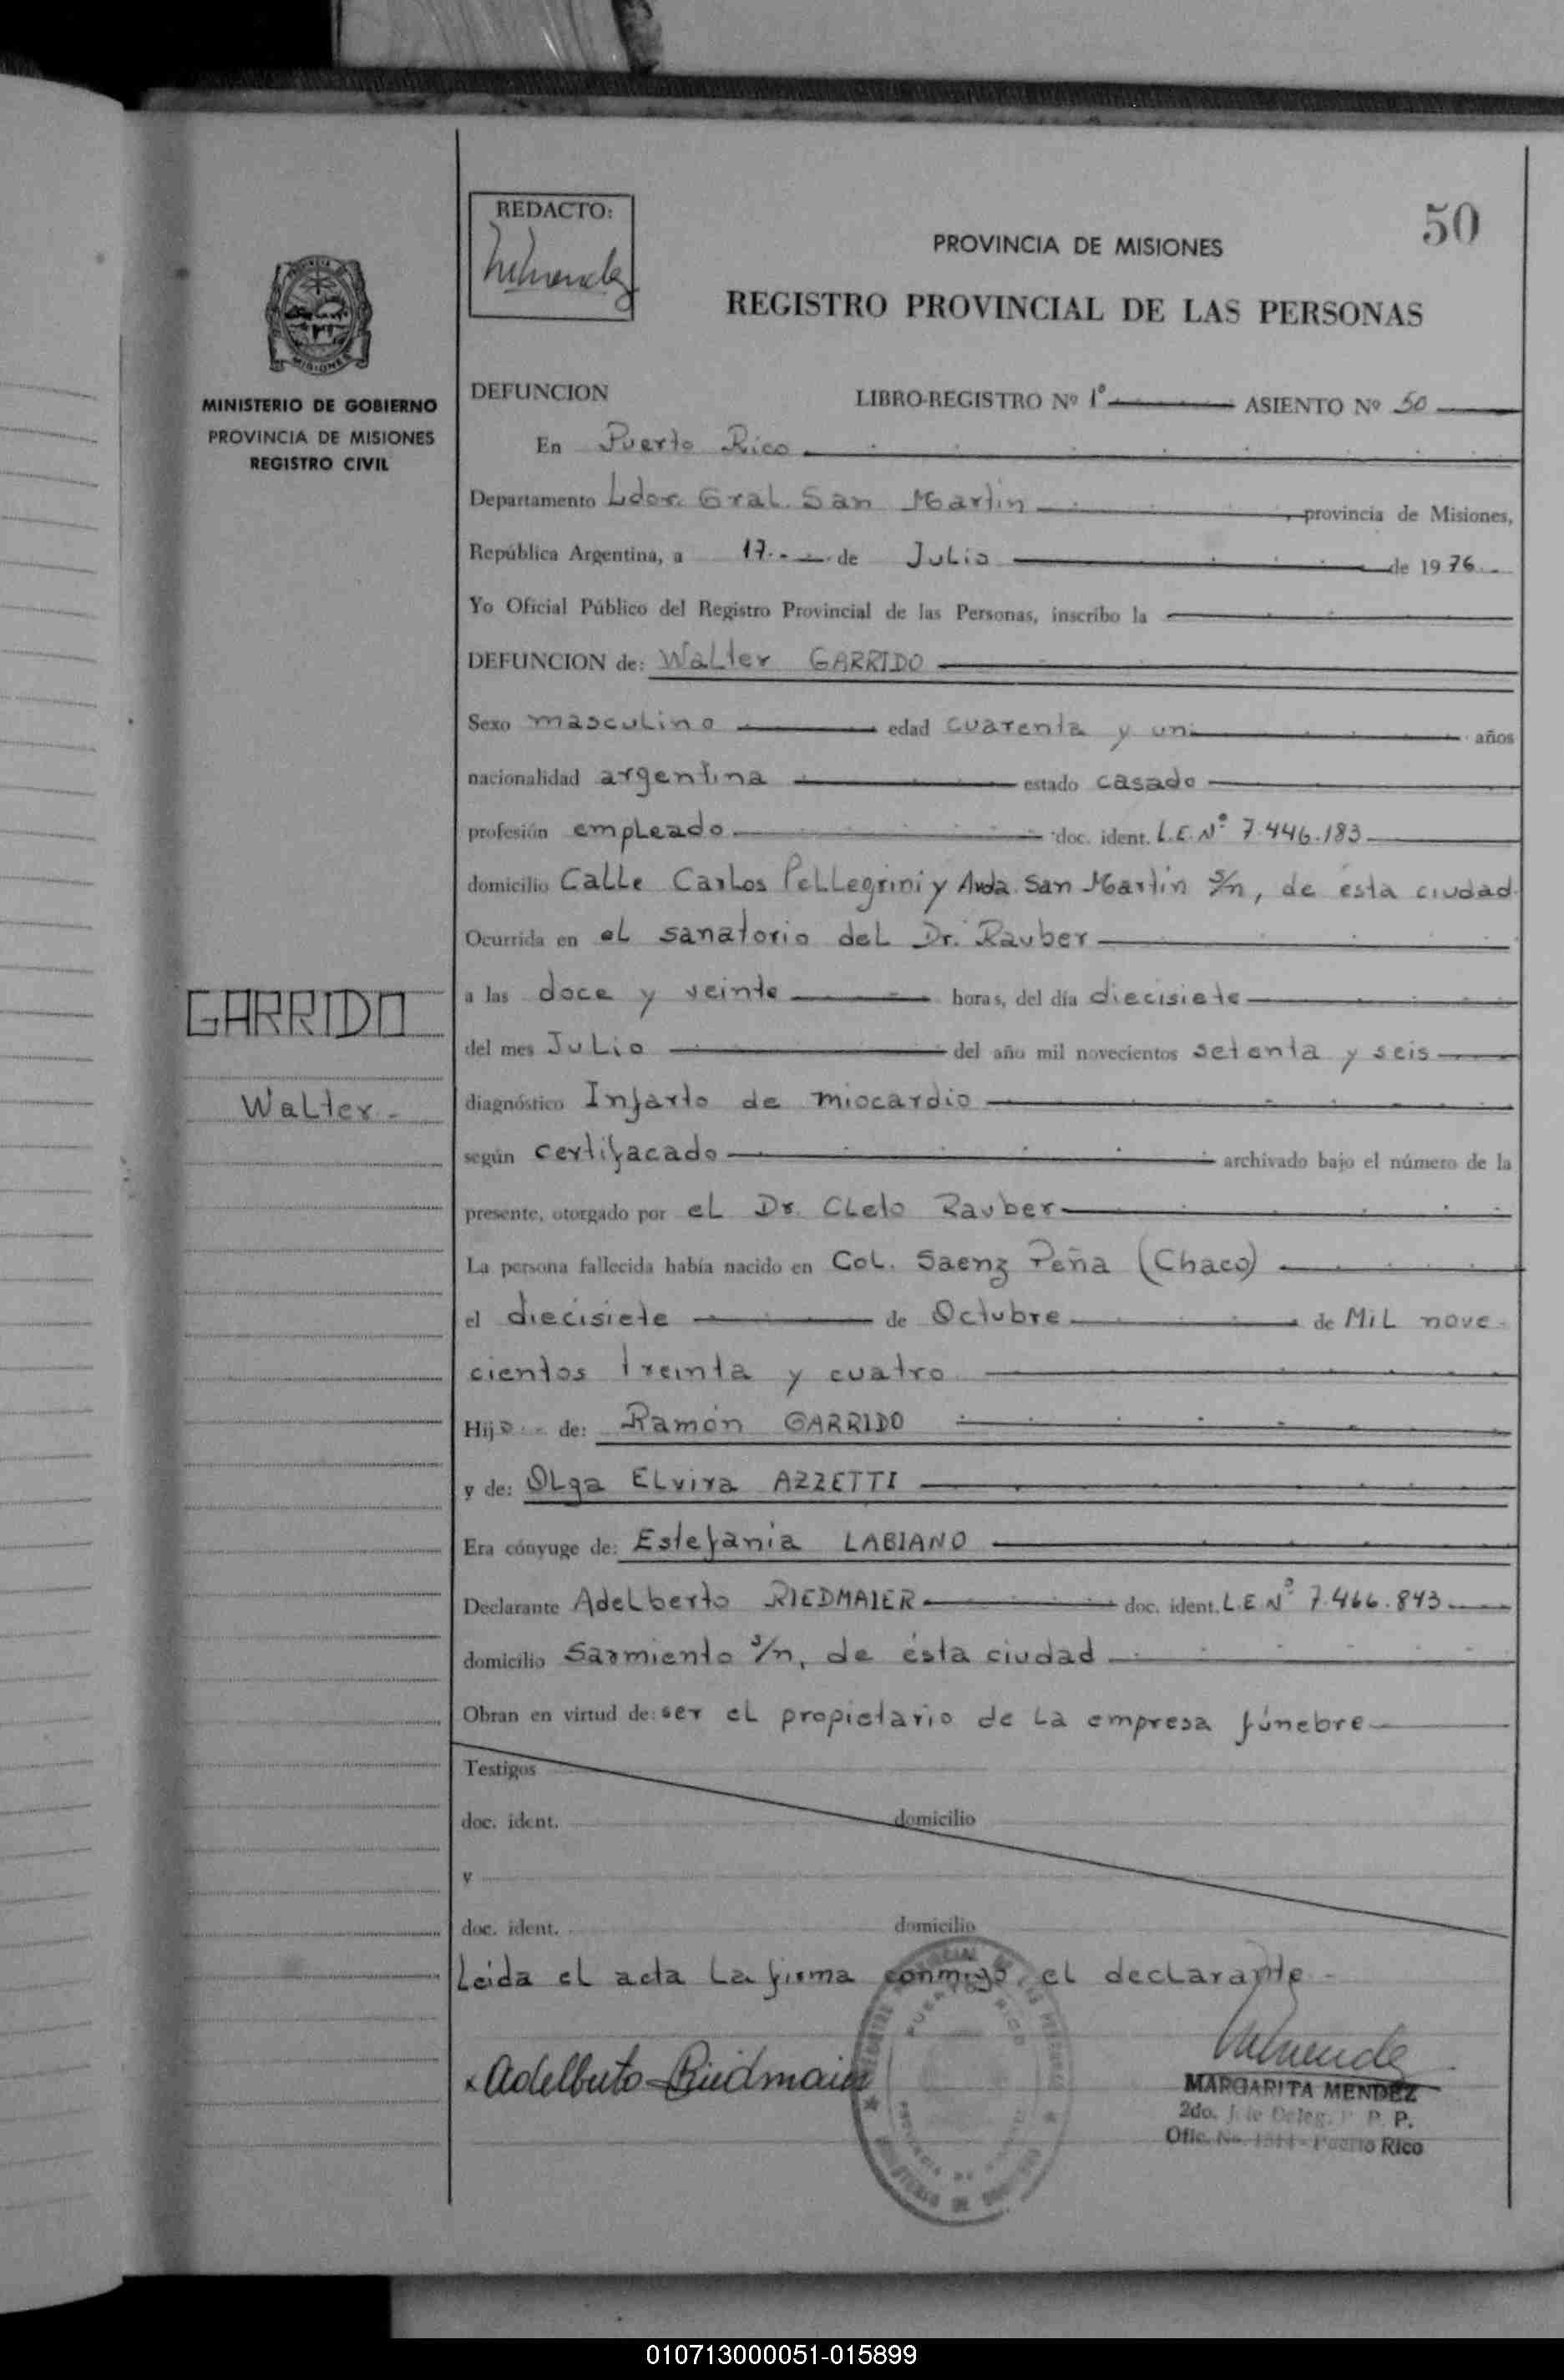 50
REDACTO:
PROVINCIA DE MISIONES
REGISTRO PROVINCIAL DE LAS PERSONAS
MISIONES
MINISTERIO DE GOBIERNO
PROVINCIA DE MISIONES
REGISTRO CIVIL
GARRIDO
Walter.-
DEFUNCION LIBRO-REGISTRO Nº 1º ASIENTO Nº 50
En Puerto Rico
Departamento Ldor. Gral. San Martin , provincia de Misiones,
República Argentina, a 17.- de Julio de 1976.-
Yo Oficial Público del Registro Provincial de las Personas, inscribo la
DEFUNCION de: Walter GARRIDO
Sexo masculino edad cuarenta y un años
nacionalidad argentina estado casado
profesión empleado doc. ident. L.E.Nº 7.446.183
domicilio Calle Carlos Pellegrini y Avda. San Martin s/n, de ésta ciudad.
Ocurrida en el sanatorio del Dr. Rauber
a las doce y veinte horas, del día diecisiete
del mes Julio del año mil novecientos setenta y seis
diagnóstico Infarto de miocardio
según certifacado archivado bajo el número de la
presente, otorgado por el Dr. Cleto Rauber
La persona fallecida había nacido en Col. Saenz Peña (Chaco)
el diecisiete de Octubre de Mil nove-
cientos treinta y cuatro
Hijo.- de: Ramón GARRIDO
y de: Olga Elvira AZZETTI
Era cónyuge de: Estefania LABIANO
Declarante Adelberto RIEDMAIER doc. ident. L.E Nº 7.466.843
domicilio Sarmiento s/n, de ésta ciudad
Obran en virtud de: ser el propietario de la empresa fúnebre
Testigos
doc. ident. domicilio
y
doc. ident. domicilio
Leida el acta la firma conmigo, el declarante.-
x Adelberto Riedmaier
MARGARITA MENDEZ
2do. Jefe Deleg. R. P. P.
Ofic. No. Puerto Rico
PUERTO RICO
010713000051-015899